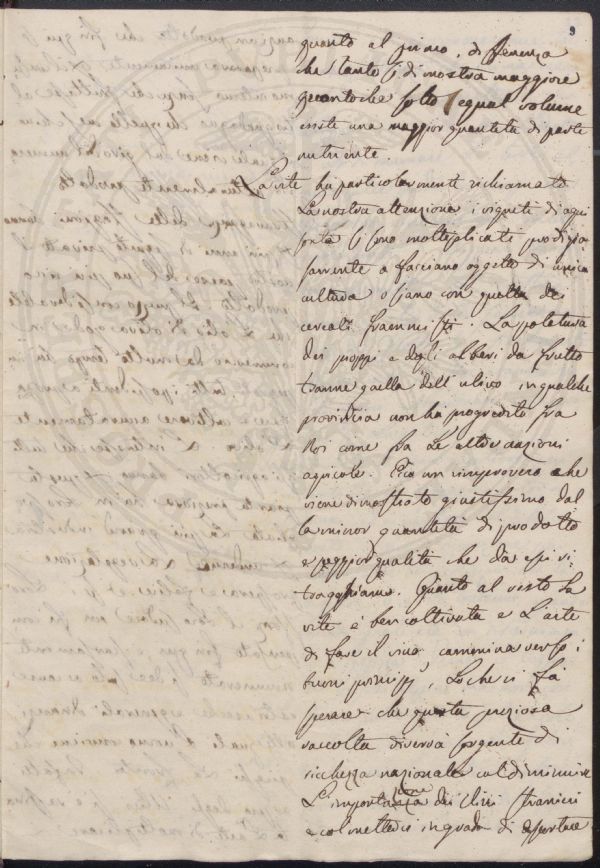 9
quanto al primo, di semenza
che tanto si dimostra maggiore
quantoche sotto egual volume
esiste una maggior quantità di parte
nutriente.
La vite ha particolarmente richiamato
La nostra attenzione i vigneti di ogni
sorta si sono moltiplicati prodigio
samente o facciano oggetto di unica
cultura o siano con quella dei
cereali frammisti. La potatura
dei pioppi e degli alberi da frutto
tranne quella dell'ulivo in qualche
provincia non ha progredito fra
Noi come fra Le altre nazioni
agricole. È un rimprovero che
viene dimostrato giustissimo dal
la minor quantità di prodotto
e peggior qualità che da essi ri-
tragghiamo. Quanto al resto La
vite è ben coltivata e L'arte
di fare il vino cammina verso i
buoni principj, Loche ci fa
sperare che questa preziosa
raccolta diverrà sorgente di
ricchezza nazionale col diminuire
L'importazione dei vini stranieri
e col metterci in grado di esportare